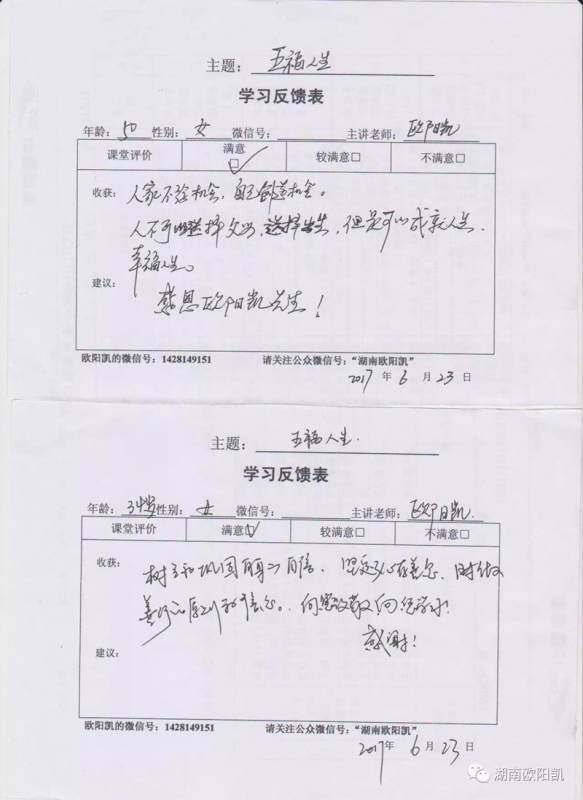 主题：五福人生
学习反馈表
年龄：50 性别：女 微信号： 主讲老师：欧阳凯
课堂评价 满意□✓ 较满意□ 不满意□
收获：人家不给机会，自己创造机会。
人不可以选择父母、选择出生，但是可以成就人生，
幸福人生。
建议：感恩欧阳凯先生！
欧阳凯的微信号：1428149151 请关注公众微信号：“湖南欧阳凯”
2017年6月23日
主题：五福人生
学习反馈表
年龄：34岁 性别：女 微信号： 主讲老师：欧阳凯
课堂评价 满意☑ 较满意□ 不满意□
收获：树立和巩固自信，坚定心存善念，时时做
善
感谢！
建议：
欧阳凯的微信号：1428149151 请关注公众微信号：“湖南欧阳凯”
2017年6月23日
湖南欧阳凯